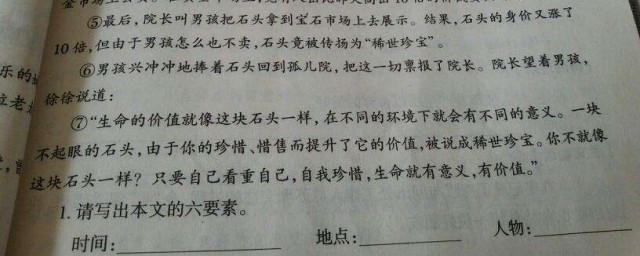 ⑤最后，院长叫男孩把石头拿到宝石市场上去展示。结果，石头的身价又涨了
10倍，但由于男孩怎么也不卖，石头竟被传扬为“稀世珍宝”。
⑥男孩兴冲冲地捧着石头回到孤儿院，把这一切禀报了院长。院长望着男孩，
徐徐说道：
⑦“生命的价值就像这块石头一样，在不同的环境下就会有不同的意义。一块
不起眼的石头，由于你的珍惜、惜售而提升了它的价值，被说成稀世珍宝。你不就像
这块石头一样？只要自己看重自己，自我珍惜，生命就有意义，有价值。”
1. 请写出本文的六要素。
时间： 地点： 人物：